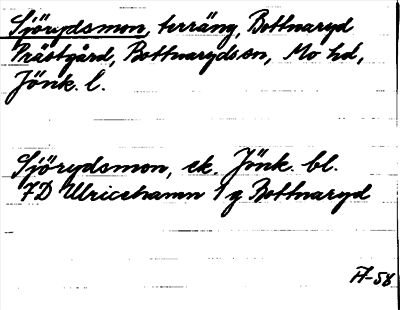 Sjörydsmon, terräng, Bottnaryd
Prästgård, Bottnaryds sn, Mo hd,
Jönk. l.
Sjörydsmon, ek. Jönk. bl.
7D Ulricehamn 1g Bottnaryd
FA-58